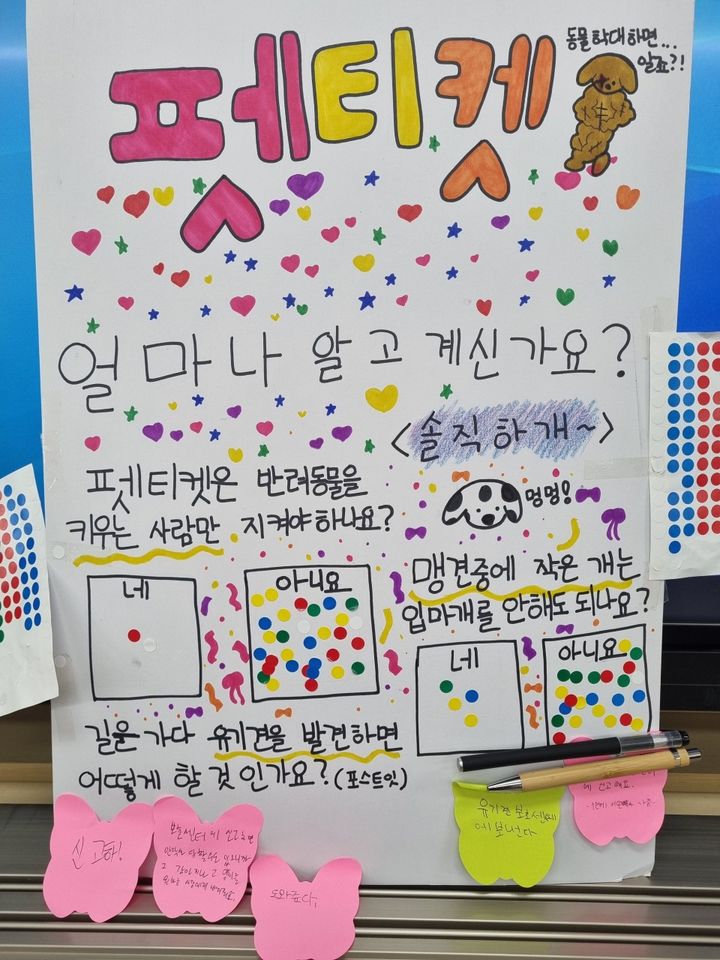 펫티켓
동물 학대하면...
알죠?!
얼마나 알고 계신가요?
<솔직하개~>
펫티켓은 반려동물을
키우는 사람만 지켜야하나요?
네
아니요
멍멍!
맹견중에 작은 개는
입마개를 안해도 되나요?
네
아니요
길을 가다 유기견을 발견하면
어떻게 할 것 인가요? (포스트잇)
신고하!
보호센터에 신고하면
도와준다.
유기견 보호센터
에 보낸다
에 신고해요.